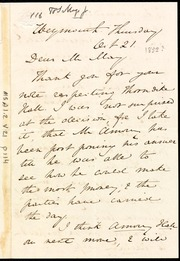 116
Weymouth Thursday
Oct 21
1852?
Dear Mr May
Thank you for your
note respecting
Hall I was not surprised
at the decision, for I take
it that Mr Amory has
been post poning his answer
till he was able to
see how he could make
the most money, & the
parties have carried
the day
I think Amory Hall
our next move, & will